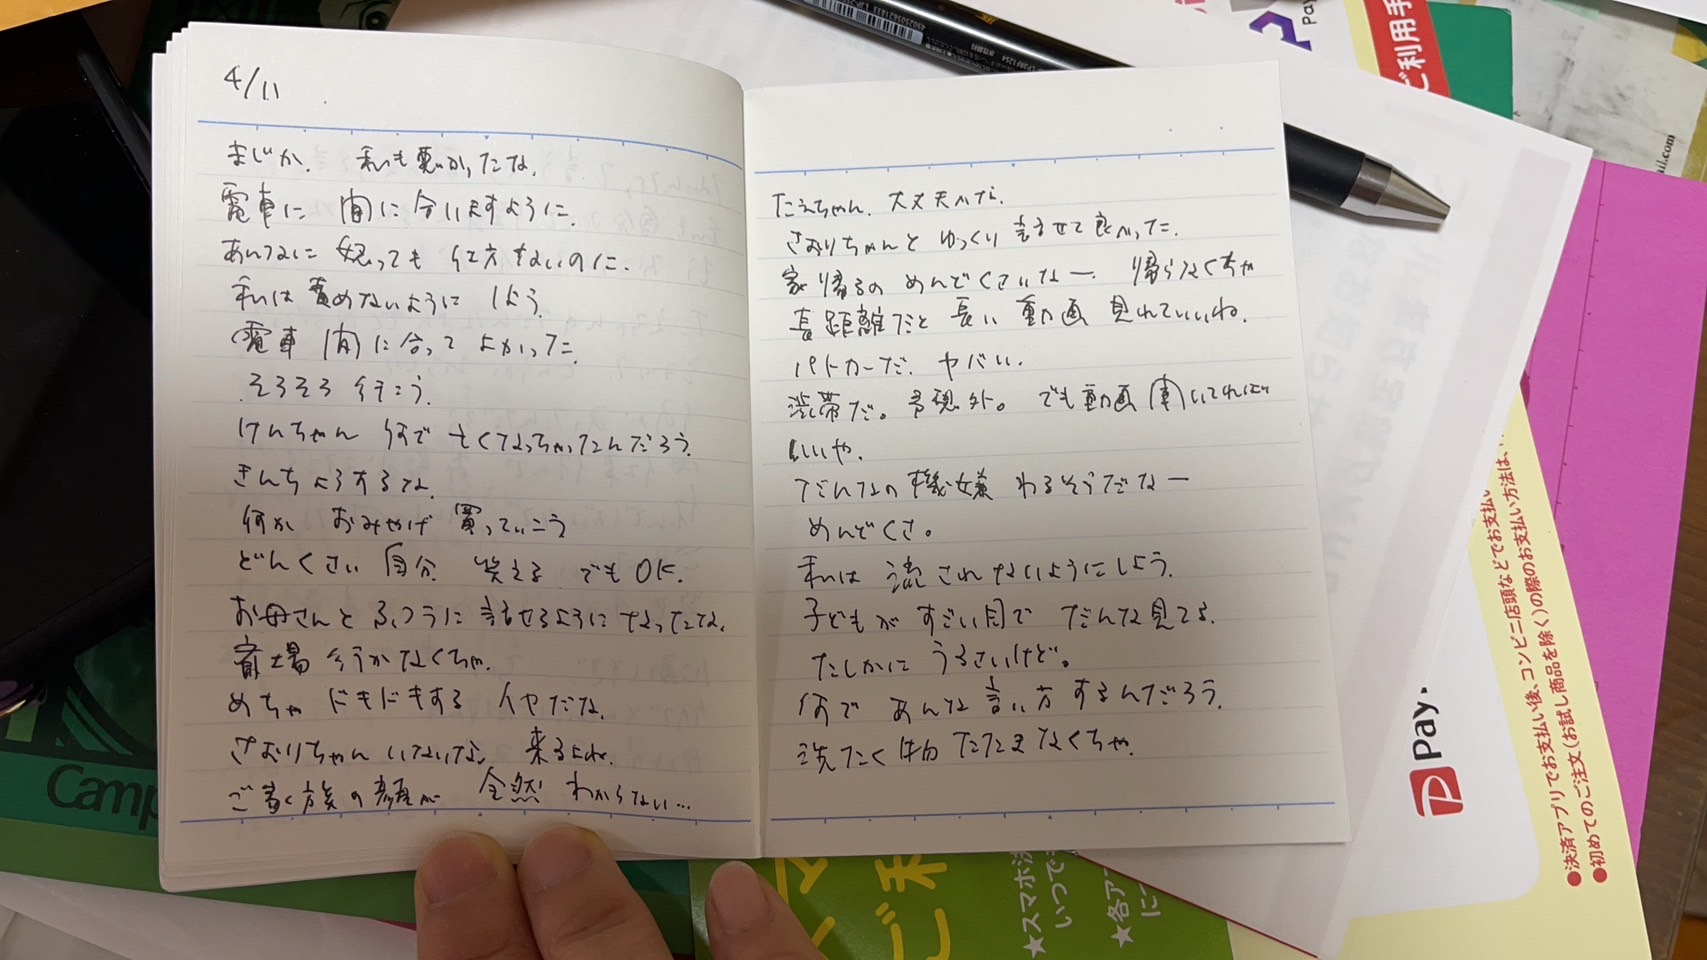 4/11
まじか. 私も悪かったな.
電車に 間に合いますように.
あんなに 怒っても 仕方ないのに.
私は 責めないように しよう.
電車 間に合って よかった.
そろそろ 行こう.
けんちゃん 何で 亡くなっちゃったんだろう.
きんちょうするな.
何か おみやげ 買っていこう
どんくさい 自分 笑える でもOK.
お母さんと ふつうに 話せるようになったな.
斎場 行かなくちゃ.
めちゃ ドキドキする イヤだな.
さおりちゃん いないな. 来るよね.
ご家族の顔が 全然 わからない…
たえちゃん. 大丈夫かな.
さおりちゃんと ゆっくり 話せて 良かった.
家帰るの めんどくさいなー. 帰らなくちゃ
長距離だと 長い 動画 見れていいね.
パトカーだ. ヤバい.
渋帯だ。予想外。 でも動画 聞いてれば
いいや.
だんなの 機嫌 わるそうだなー
めんどくさ。
私は 流されないようにしよう.
子どもが すごい目で だんな見てる.
たしかに うるさいけど。
何で あんな 言い方 するんだろう.
洗たく物 たたまなくちゃ.
Camp
Pay
ご利用手
Pay.
●決済アプリでお支払い後、コンビニ店頭などでお支払い
●初めてのご注文(お試し商品を除く)の際のお支払い方法は、
★スマホ決
いつで
★各ア